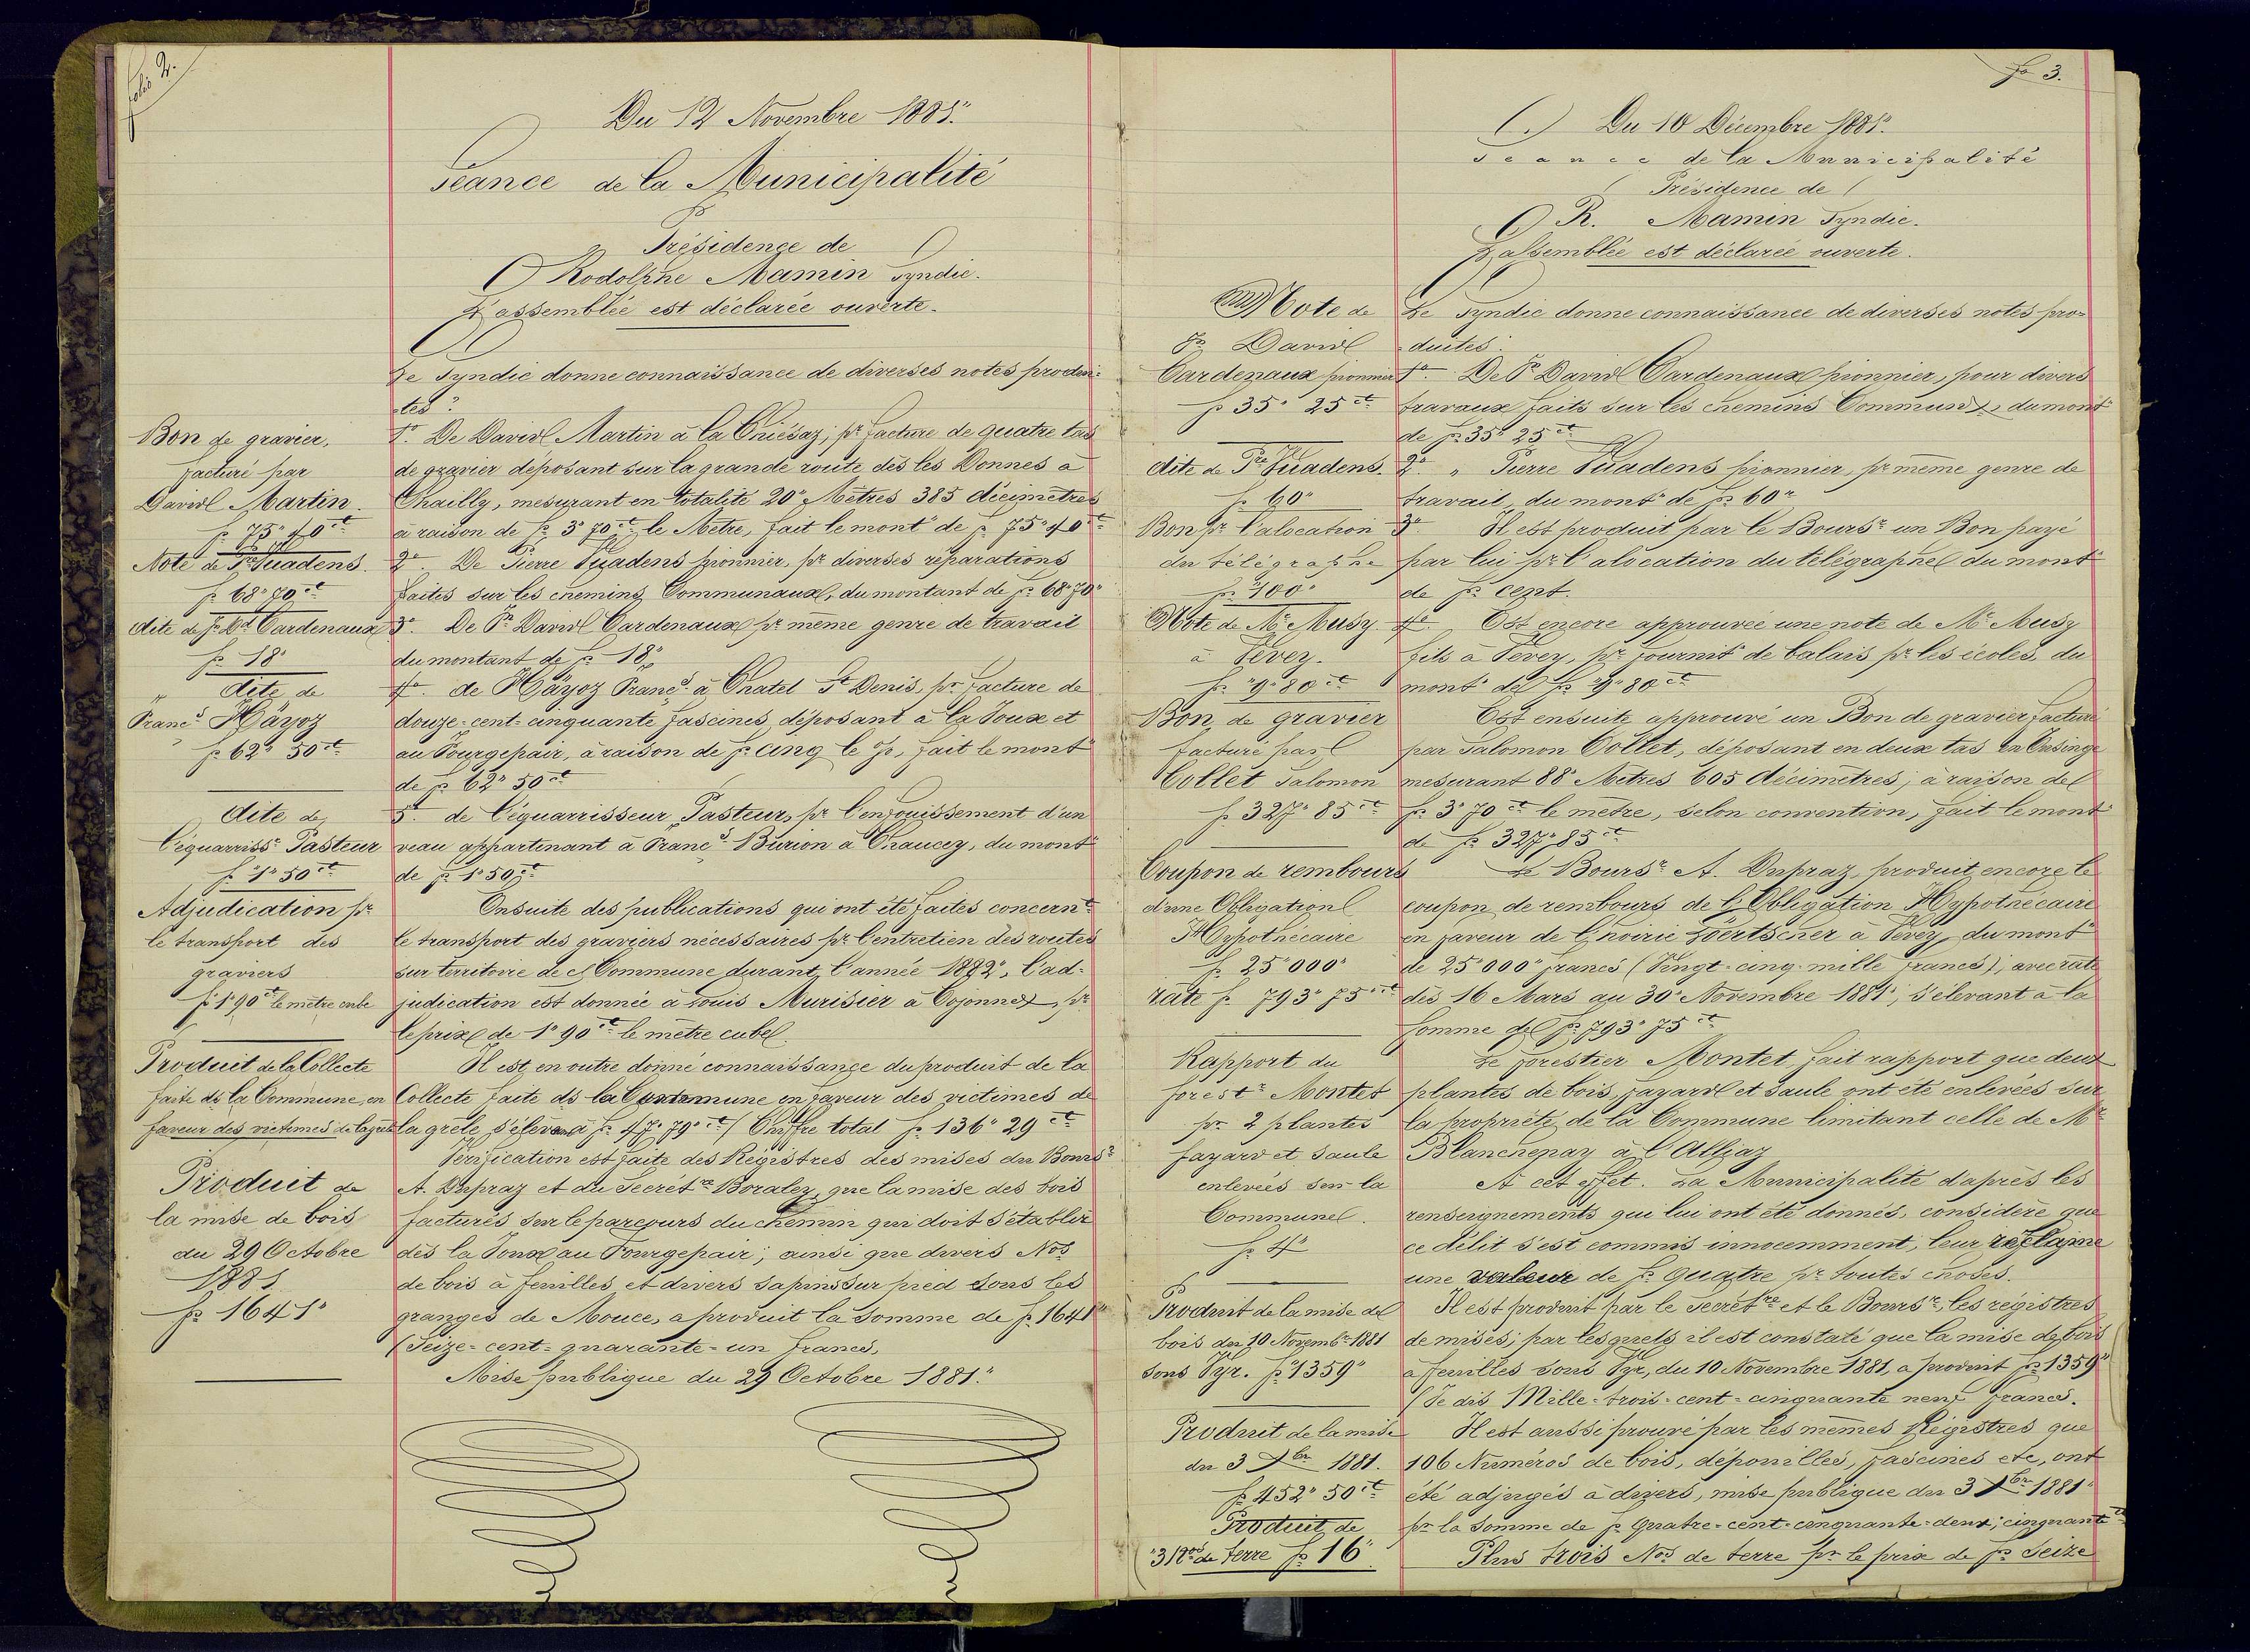 folio 2.
Du 12 Novembre 1881."
Séance de la Municipalité
Présidence de
Rodolphe Mamin Syndic.
L'assemblée est déclarée ouverte.
Le Syndic donne connaissance de diverses notes produi-
tes".
Bon de gravier,
facturé par
David Martin.
fr. 75" 40 ct
1° De David Martin à la Chiésaz; pr facture de quatre tas
de gravier déposant sur la grande route dès les Bonnes à
Chailly, mesurant en totalité 20" Mètres 385 décimètres
à raison de fr. 3" 70 ct le Mètre, fait le mont" de fr. 75" 40 ct
Note de Pre Vuadens.
fr. 68" 70 ct
2° De Pierre Vuadens pionnier, pr diverses réparations
faites sur les chemins Communaux, du montant de fr. 68" 70"
dite de F. Dd Cardenaux
fr. 18"
3° De Fs David Cardenaux pr même genre de travail
du montant de fr. 18"
" dite de
Francs Häyoz
fr. 62" 50 ct
4° de Häyoz Francs à Chatel St Denis, pr facture de
douze-cent-cinquante fascines déposant à la Joux et
au Pourgepair, à raison de fr. cinq le %, fait le mont"
de fr. 62" 50 ct
dite de
l'équarrissr Pasteur
fr. 1" 50 ct
5° de l'équarrisseur Pasteur, pr l'enfouissement d'un
veau appartinant à Francs Burion à Chaucey, du mont"
de fr. 1" 50 ct
Adjudication pr
le transport des
graviers
fr. 1" 90 ct le mètre cube
Ensuite des publications qui ont été faites concernt
le transport des graviers nécessaires pr l'entretien des routes
sur territoire de ct Commune durant l'année 1882", l'ad-
judication est donnée à Louis Murisier à Cojonnex, pr
le prix de 1" 90 ct le mètre cube.
Produit de la Collecte
faite ds la Commune en
faveur des victimes de la grêle
Il est en outre donné connaissance du produit de la
Collecte faite ds la Commune en faveur des victimes de
la grêle, s'élevant à fr. 47" 79" ct / Chiffre total fr. 136" 29 ct
Produit de
la mise de bois
du 29 Octobre
1881
fr. 1641"
Vérification est faite des Régistres des mises du Boursr
A. Dupraz et du Secrétre Boraley, que la mise des bois
facturés sur le parcours du chemin qui doit s'établir
dès la Joux au Pourgepair; ainsi que divers Nos
de bois à feuilles et divers sapins sur pied sous les
granges de Mouces, a produit la Somme de fr. 1641"
(Seize-cent-quarante-un francs,
Mise publique du 29 Octobre 1881."
fo 3.
Du 10 Décembre 1881".
Séance de la Municipalité
Présidence de
R. Mamin Syndic.
L'assemblée est déclarée ouverte.
Note de
Fs David
Cardenaux pionnier
fr. 35" 25 ct
Le Syndic donne connaissance de diverses notes pro-
duites".
1° De Fs David Cardenaux pionnier, pour divers
travaux faits sur les chemins Communx, du mont"
de fr. 35" 25 ct
dite de Pre Vuadens.
fr. 60"
2° " Pierre Vuadens pionnier, pr même genre de
travail, du mont" de fr. 60"
Bon pr l'alocation
du télégraphe
fr. 100"
3° Il est produit par le Boursr un Bon payé
par lui pr l'alocation du télégraphe du mont"
de fr. cent.
Note de Mr Musy
à Vevey.
fr. "9" 80 ct
4° Est encore approuvée une note de Mr Musy
fils à Vevey, pr fournit" de balais pr les écoles, du
mont" de fr. "9" 80 ct
Bon de gravier
facturé par
Collet Salomon
fr. 327" 85 ct
Est ensuite approuvé un Bon de gravier facturé
par Salomon Collet, déposant en deux tas En Ensinge
mesurant 88" Mètres 605 décimètres, à raison de
fr. 3" 70 ct le mètre, selon convention, fait le mont"
de fr. 327" 85 ct
Coupon de rembours
d'une Obligation
Hypothécaire
fr. 25"000"
rate fr. 793" 75 ct
Le Boursr A. Dupraz, produit encore le
coupon de rembours de l'Obligation Hypothécaire
en faveur de l'hoirie Lœrtscher à Vevey, du mont"
de 25"000" francs (Vingt-cinq-mille francs), avec rate
dès 16 Mars au 30" Novembre 1881", s'élevant à la
somme de fr. 793" 75 ct
Rapport du
forestr Montet
pr 2 plantes
fayard et saule
enlevées sur la
Commune.
fr. 4"
Le forestier Montet fait rapport que deux
plantes de bois, fayard et saule ont été enlevées sur
la propriété de la Commune limitant celle de Mr
Blanchenay à l'Alliaz
A cet effet. La Municipalité d'après les
renseignements qui lui ont été donnés, considère que
ce délit s'est commis innocemment, leur réclame
une valeur de fr. Quatre pr toutes choses.
Produit de la mise de
bois du 10 Novembr 1881
sous Vyr. fr. 1359"
Il est produit par le Secrétre et le Boursr, les régistres
de mises; par lesquels il est constaté que la mise de bois
à feuilles sous Vyr, du 10 Novembre 1881, a produit fr. 1359"
(Je dis Mille-trois-cent-cinquante neuf francs.
Produit de la mise
du 3 Xbr 1881.
fr. 452" 50 ct
Il est aussi prouvé par les mêmes Régistres que
106 Numéros de bois, dépouilles, fascines etc, ont
été adjugés à divers, mise publique du 3 Xbr 1881"
pr la Somme de fr. Quatre-cent-cinquante-deux; cinquante ct
Produit de
"3 Nos de terre fr. 16".
Plus trois Nos de terre pr le prix de fr. Seize